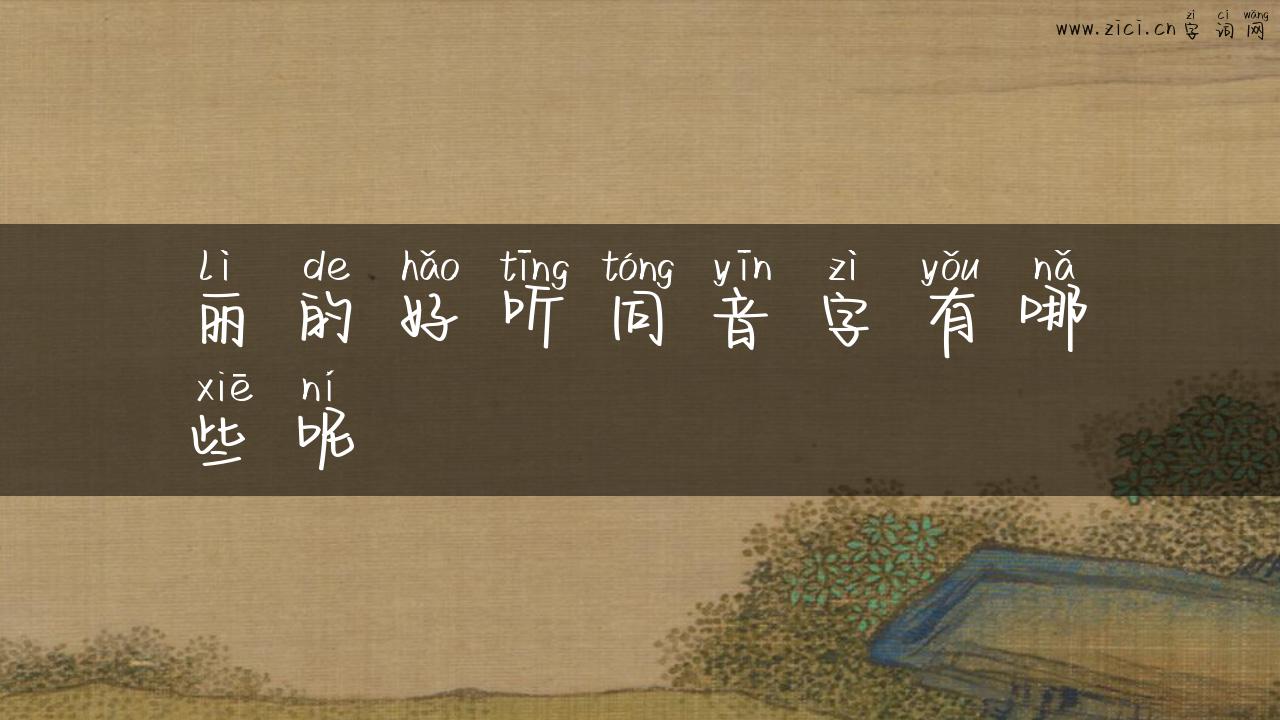 zì cí wǎng
www.zici.cn 字 词 网
lì de hǎo tīng tóng yīn zì yǒu nǎ
丽 的 好 听 同 音 字 有 哪
xiē ní
些 呢